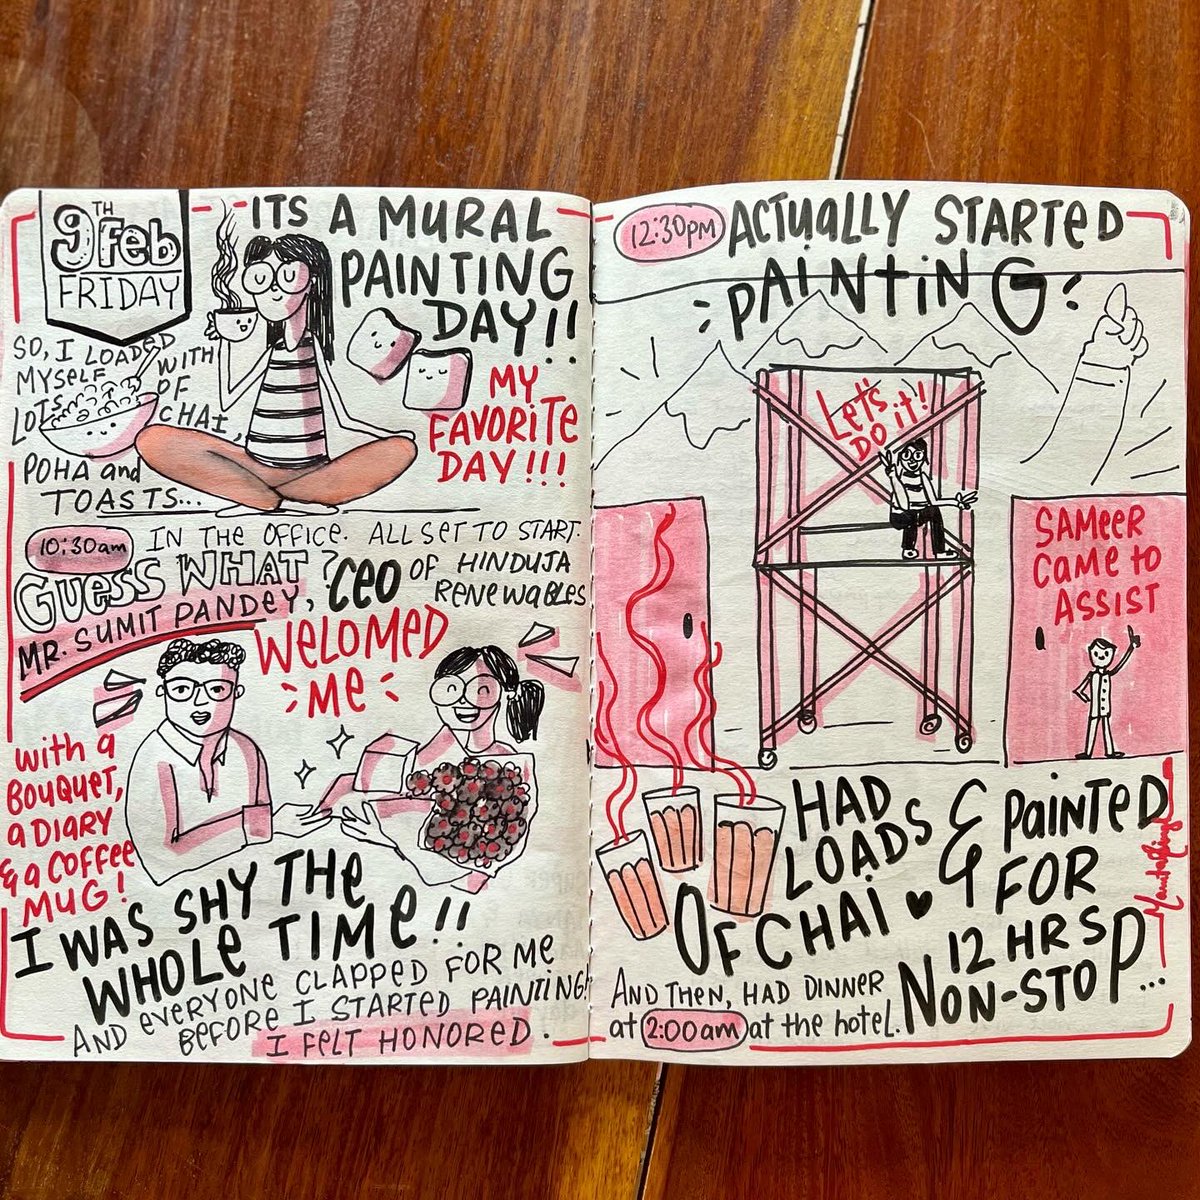 9TH
Feb
FRIDAY
ITS A MURAL
PAINTING
DAY!!
MY
FAVORITE
DAY!!!
SO, I LOADED
MYSELF WITH
LOTS OF
CHAI,
POHA and
TOASTS...
10:30am IN THE OFFICE. ALL SET TO START.
GUESS WHAT?
MR. SUMIT PANDEY, CEO OF HINDUJA
RENEWABLES
WELOMED
ME
with a
BOUQUET,
a DIARY
& a COFFEE
MUG!
I WAS SHY THE
WHOLE TIME!!
AND EVERYONE CLAPPED FOR ME
BEFORE I STARTED PAINTING!
I FELT HONORED.
12:30PM ACTUALLY STARTED
PAINTING!
LET'S
DO IT!
SAMEER
CAME TO
ASSIST
HAD
LOADS
OF CHAI
& PAINTED
FOR
12 HRS
NON-STOP...
AND THEN, HAD DINNER
at 2:00am at the hotel.